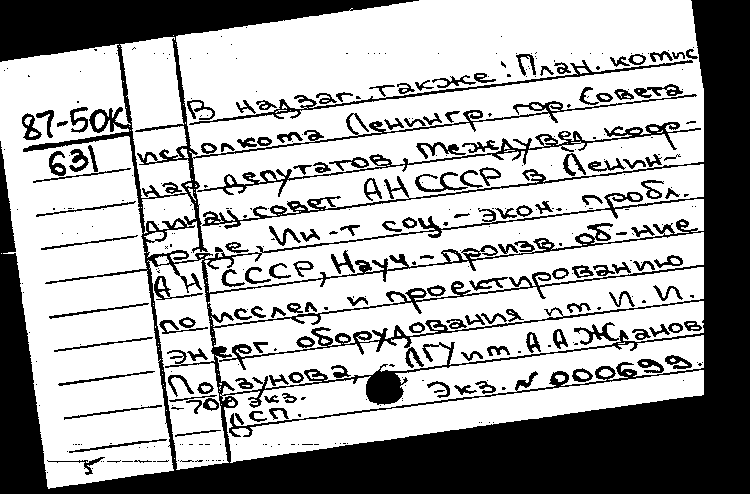 87-50К
631
В надзаг. также: План. комис
исполкома Ленингр. гор. Совета
нар. депутатов, Междувед. коор-
динац. совет АН СССР в Ленин-
граде, Ин-т соц.-экон. пробл.
АН СССР, Науч.-произв. об-ние
по исслед. и проектированию
энерг. оборудования им. И. И.
Ползунова, ЛГУ им. А.А.Жданов
- 700 экз. Экз. № 000699.
ДСП.
5